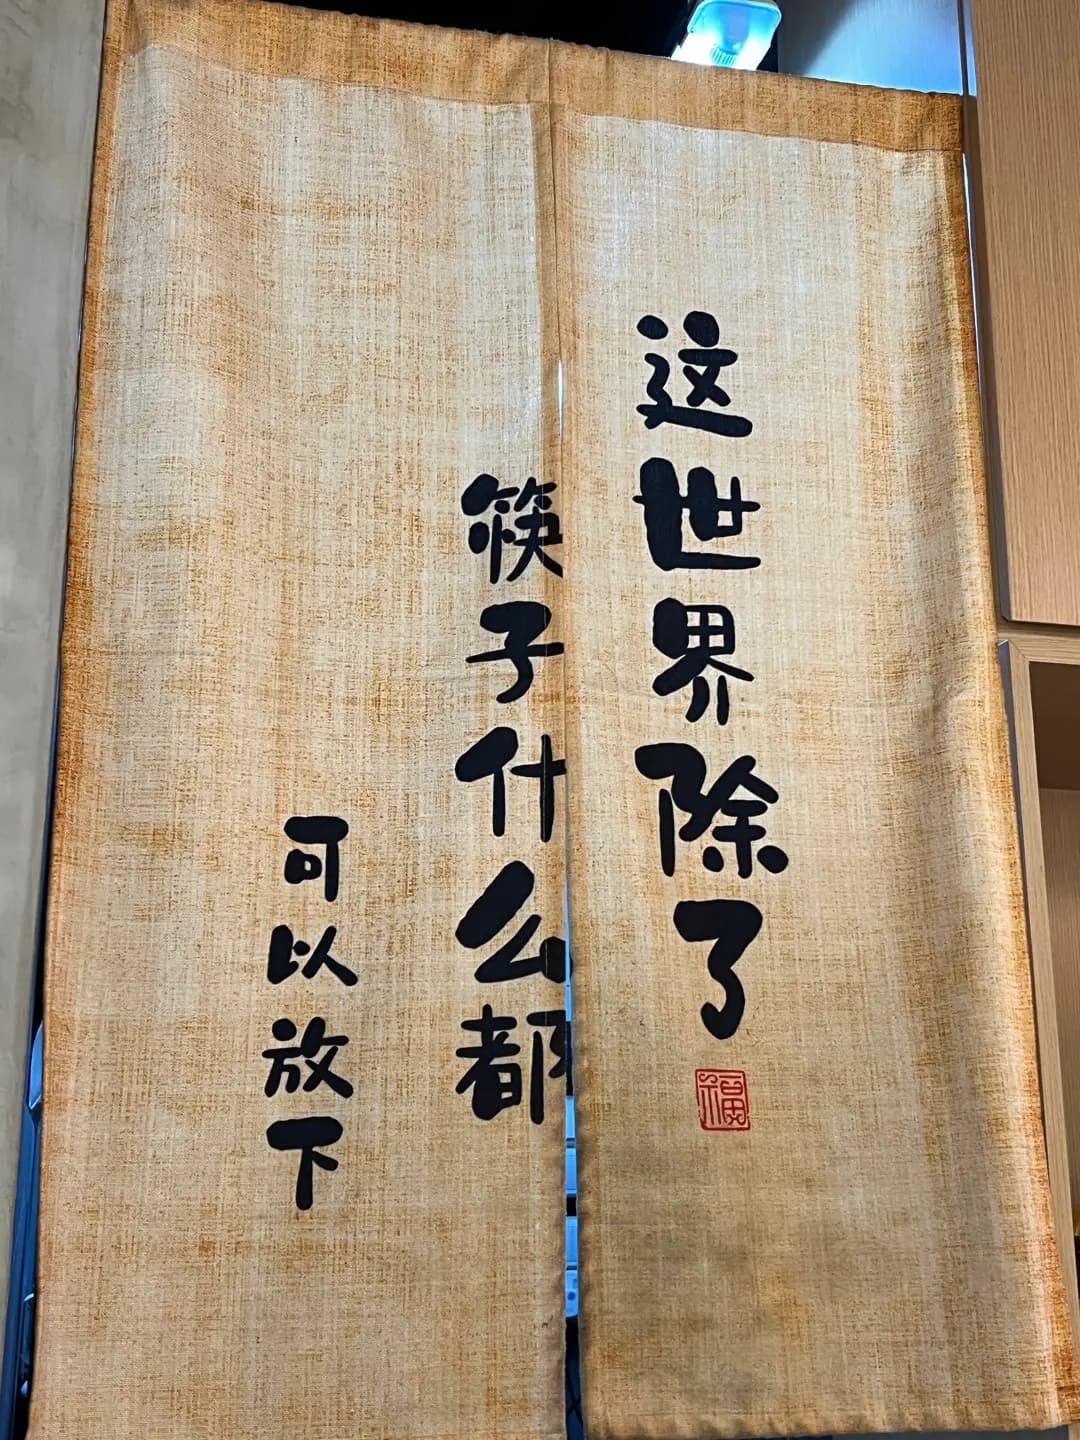 这世界除了
筷子什么都
可以放下
福